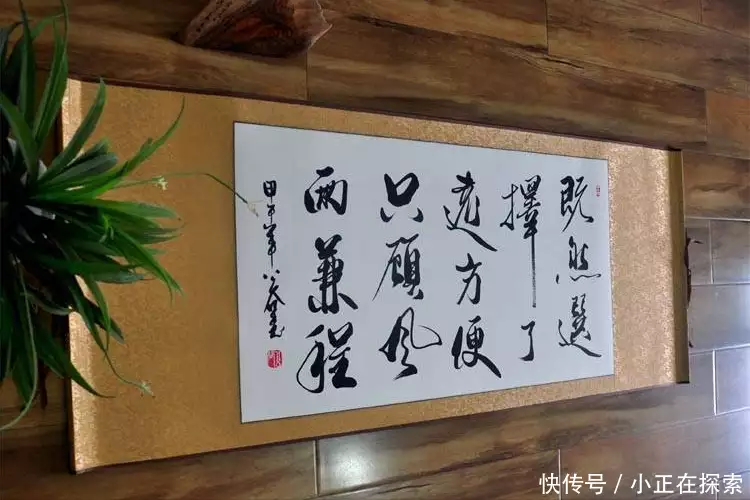 既然選
擇了
遠方便
只顧风
雨兼程
甲午年
快传号 / 小正在探索